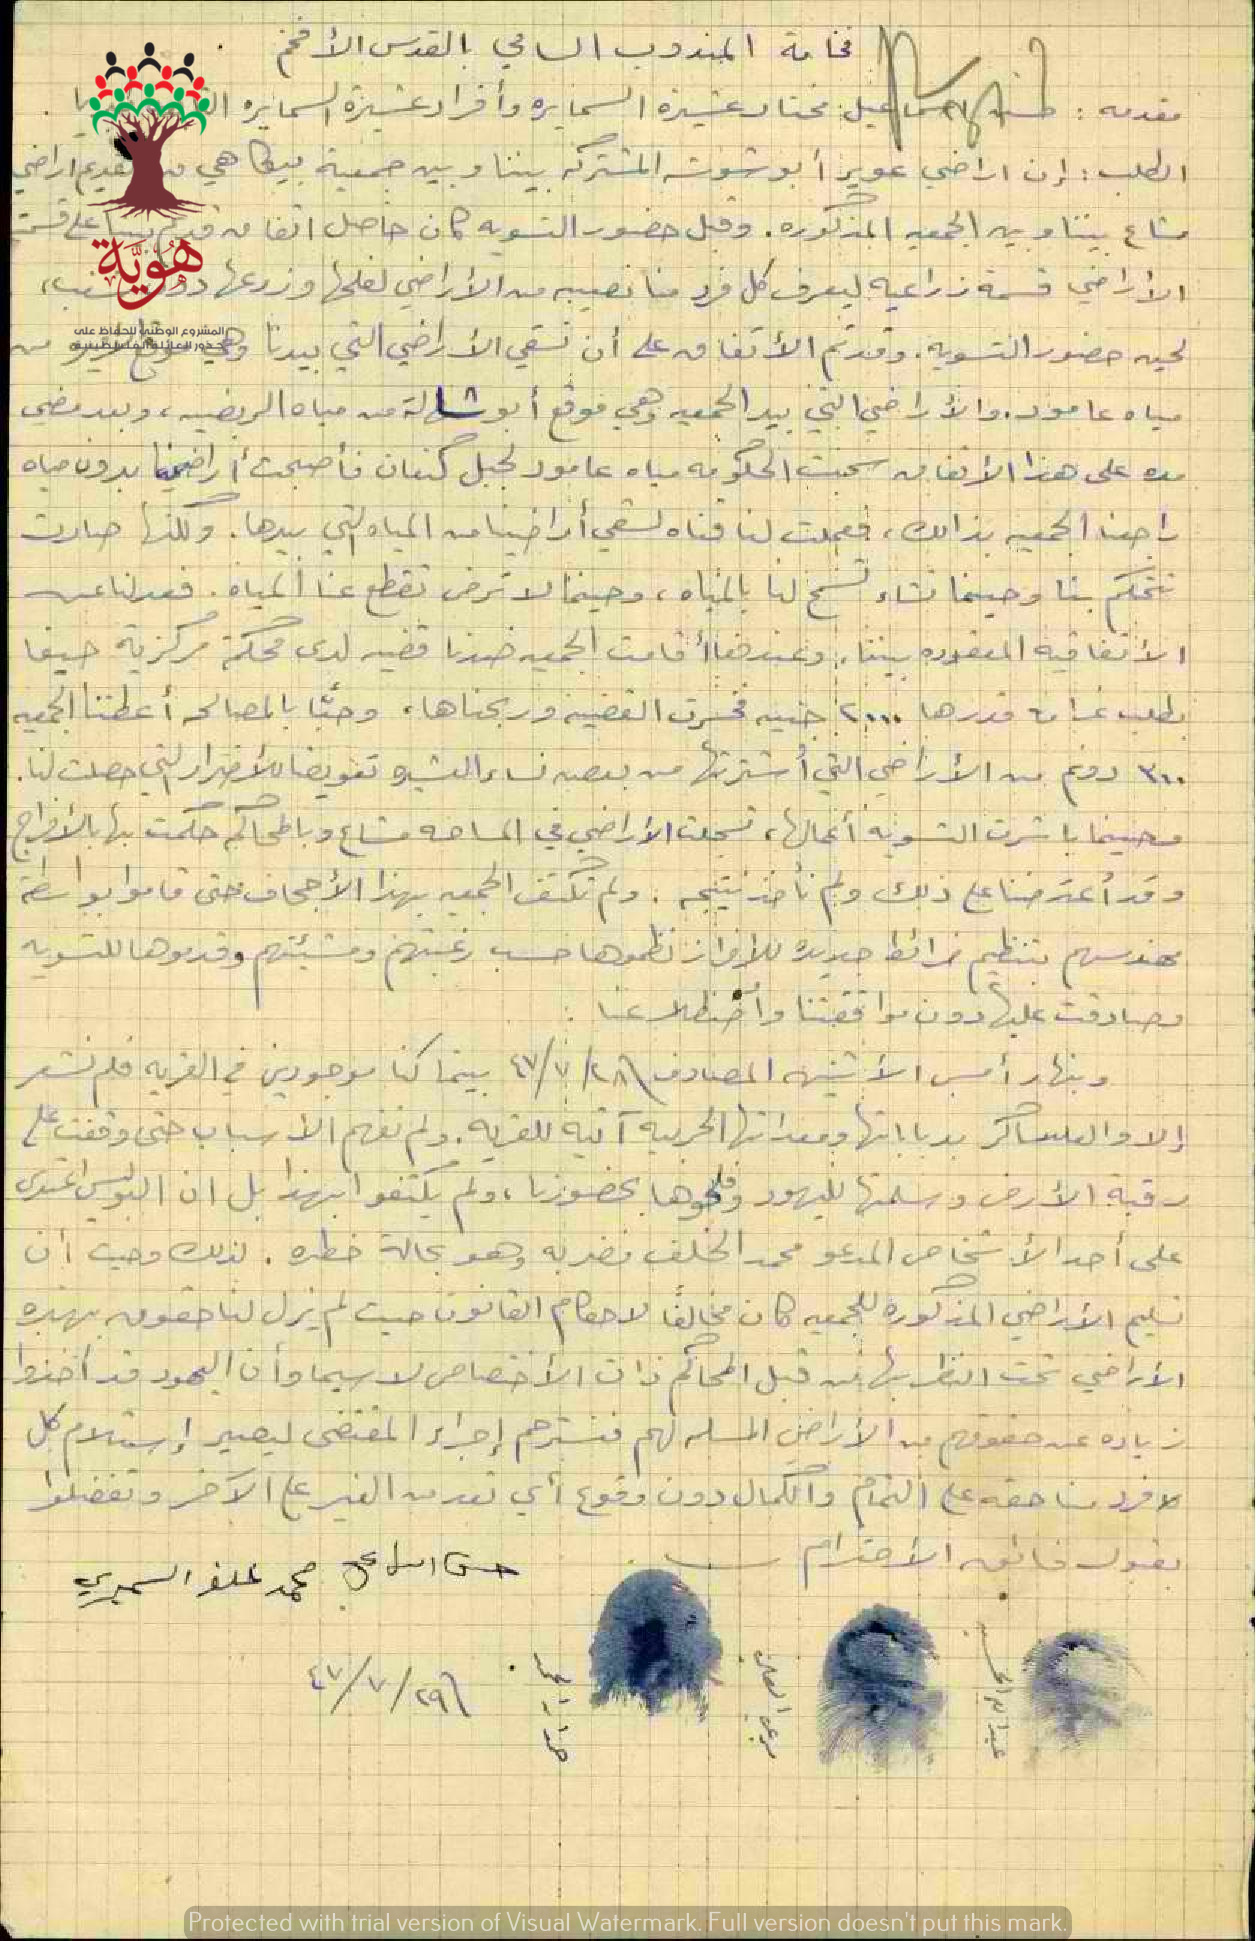 فخامة المندوب السامي بالقدس الأفخم
مقدمه : حسن اسماعيل مختار عشيرة السمايره وأفراد عشيرة السمايره
الطلب : إن اراضي غوير أبو شوشه المشتركه بيننا وبين جمعية بيكا هي من القديم اراضي
مشاع بيننا وبين الجمعيه المذكوره. وقبل حضور التسويه كان حاصل اتفاق على قسمة
الأراضي قسمة زراعيه ليعرف كل فرد منا نصيبه من الأراضي لفلحها وزرعها دون
لحين حضور التسويه. وقد تم الأتفاق على أن تسقي الأراضي التي بيدنا وهي موقع من
مياه عامود. والأراضي التي بيد الجمعيه وهي موقع أبو شالة من مياه الربضيه، وبعد مضي
مده على هذا الأتفاق سحبت الحكومه مياه عامود لجبل كنعان فأصبحت أراضينا بدون مياه
راجعنا الجمعيه بذالك، فعملت لنا قناه لسقي أراضينا من المياه التي بيدها. ولكنها صارت
تتحكم بنا وحينما تشاء تسمح لنا بالمياه، وحينما لا ترض تقطع عنا المياه. فعدلنا عن
الأتفاقيه المعقوده بيننا، وعندها أقامت الجمعيه ضدنا قضيه لدى محكمة مركزية حيفا
بطلب غرامه قدرها ٢٠٠٠ جنيه فخسرت القضيه وربحناها، وحبًا بالمصالحه أعطتنا الجمعيه
٣٠٠ دونم من الأراضي التي أشترتها من بعض نساء العشيره تعويضا للأضرار التي حصلت لنا.
وحينما باشرت التسويه أعمالها، تسجلت الأراضي في المساحه مشاع وبالمحاكم حكمت بها بالأفراج
وقد أعترضنا على ذلك ولم نأخذ نتيجه. ولم تكتف الجمعيه بهذا الأجحاف حتى قاموا بواسطة
مهندسهم بتنظيم خرائط جديده للافراز نظموها حسب رغبتهم ومشيئتهم وقدموها للتسويه
وصادقت عليها دون موافقتنا وأضطلاعنا :
وبنهار أمس الأثنين المصادف ٢٨/٧/٤٧ بينما كنا موجودين في القريه فلم نشعر
إلا والعساكر بدباباتها ومعداتها الحربيه آتيه للقريه. ولم نفهم الأسباب حتى وقفت على
رقبة الأرض وسلمتها لليهود وفلحوها بحضورنا، ولم يكتفوا بهذا بل ان البوليس اعتدى
على أحد الأشخاص المدعو محمد الخلف فضربه وهو بحالة خطره. لذلك وحيث أن
تسليم الأراضي المذكوره للجمعيه كان مخالفًا لاحكام القانون حيث لم يزل لنا حقوق بهذه
الأراضي تحت النظر بها من قبل المحاكم ذات الأختصاص لا سيما وأن اليهود قد أخذوا
زياده عن حقوقهم من الأراضي المسلمه لهم فنسترحم إجراء المقتضى ليصير إستلام كل
فرد منا حقه على التمام والكمال دون وقوع أي تعد من الغير على الآخر وتفضلوا
بقبول فائق الأحترام
حسن اسماعيل محمد خلف السميري
٢٩/٧/٤٧
هُوِيَّة
المشروع الوطني للحفاظ على
جذور العائلة الفلسطينية
Protected with trial version of Visual Watermark. Full version doesn't put this mark.